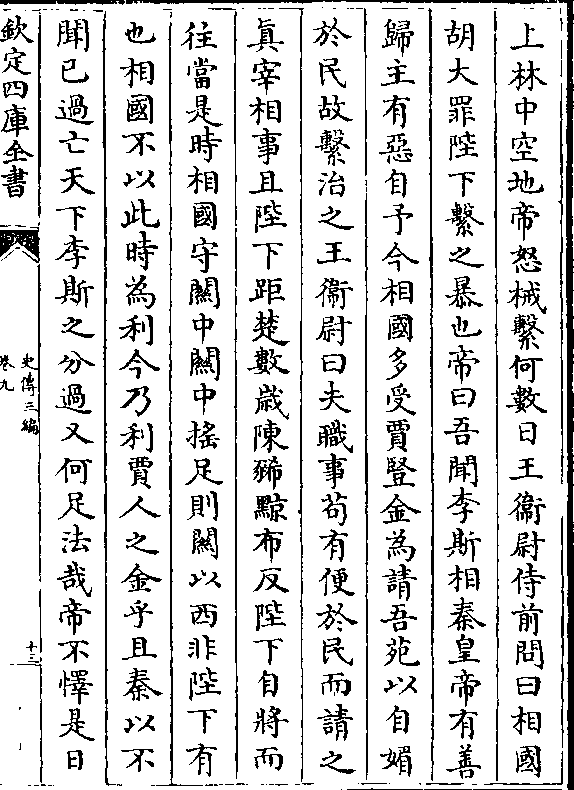 上林中空地帝怒械繫何數日王衞尉侍前問曰相國
胡大罪陛下繫之暴也帝曰吾聞李斯相秦皇帝有善
歸主有惡自予今相國多受賈豎金為請吾苑以自媚
於民故繫治之王衞尉曰夫職事苟有便於民而請之
真宰相事且陛下距楚數歲陳豨黥布反陛下自將而
往當是時相國守關中關中搖足則關以西非陛下有
也相國不以此時為利今乃利賈人之金乎且秦以不
聞已過亡天下李斯之分過又何足法哉帝不懌是日
欽定四庫全書
史傳三編
卷九
十三